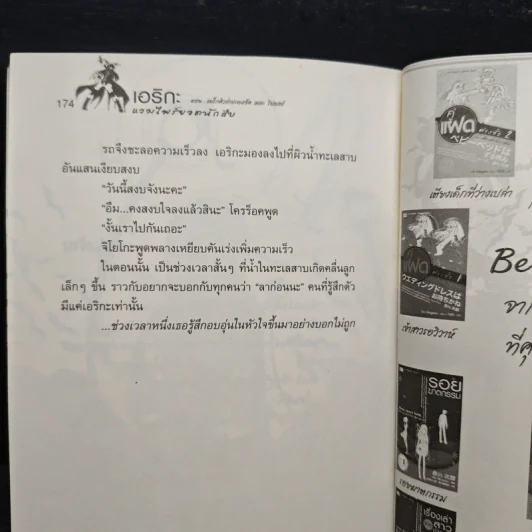 174
เอริกะ
แวมไพร์ยอดนักสืบ
รถจึงชะลอความเร็วลง เอริกะมองลงไปที่ผิวน้ำทะเลสาบ
อันแสนเงียบสงบ
“วันนี้สงบจังนะคะ”
“อืม...คงสงบใจลงแล้วสินะ” โครร็อคพูด
“งั้นเราไปกันเถอะ”
จิโยโกะพูดพลางเหยียบคันเร่งเพิ่มความเร็ว
ในตอนนั้น เป็นช่วงเวลาสั้นๆ ที่น้ำในทะเลสาบเกิดคลื่นลูก
เล็กๆ ขึ้น ราวกับอยากจะบอกกับทุกคนว่า “ลาก่อนนะ” คนที่รู้สึกตัว
มีแค่เอริกะเท่านั้น
...ช่วงเวลาหนึ่งเธอรู้สึกอบอุ่นในหัวใจขึ้นมาอย่างบอกไม่ถูก
คู่
แฝด
2
เตียงเด็กที่ว่างเปล่า
แฝด
1
ウエディングドレスは
お待ちかね
เจ้าสาวรอวิวาห์
รอย
ฆาตกรรม
1
เรื่องเล่า
สาว
Be
จาก
ที่คุ